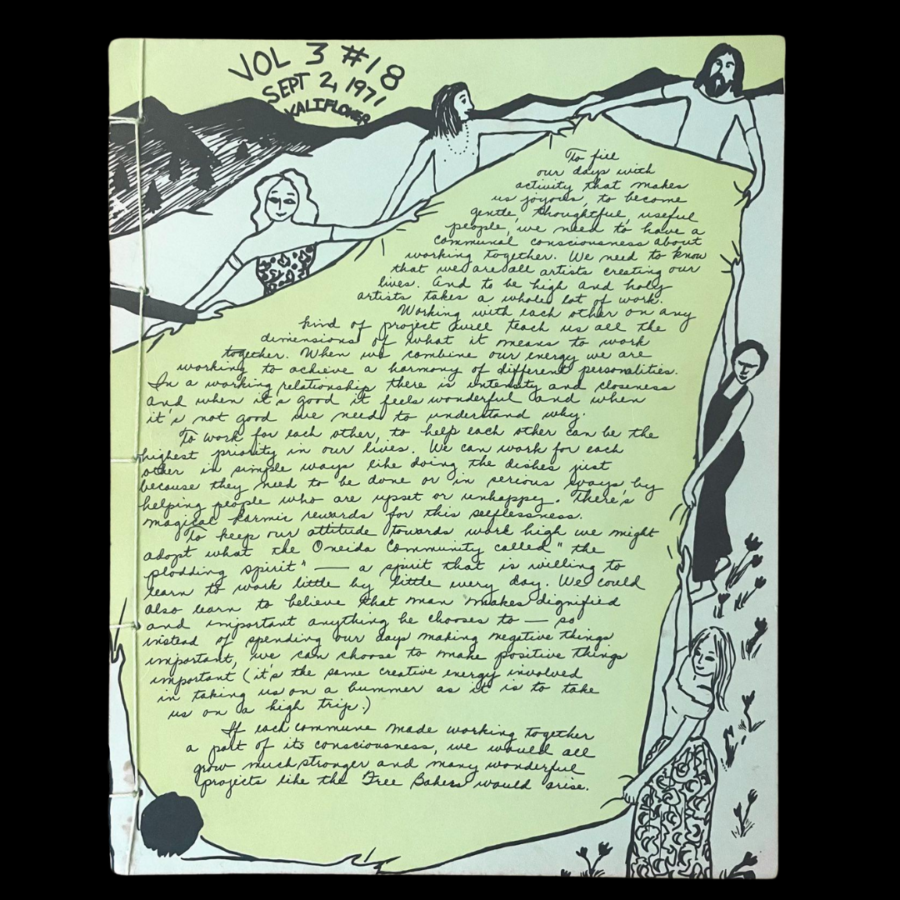 VOL 3 #18
SEPT 2, 1971
KALIFLOWER
To fill
our days with
activity that makes
us joyous, to become
gentle, thoughtful, useful
people, we need to have a
communal consciousness about
working together. We need to know
that we are all artists creating our
lives. And to be high and holy
artists takes a whole lot of work.
Working with each other on any
kind of project will teach us all the
dimensions of what it means to work
together. When we combine our energy we are
working to achieve a harmony of different personalities.
In a working relationship there is intensity and closeness
and when it's good it feels wonderful and when
it's not good we need to understand why.
To work for each other, to help each other can be the
highest priority in our lives. We can work for each
other in simple ways like doing the dishes just
because they need to be done or in serious ways by
helping people who are upset or unhappy. There's
magical karmic rewards for this selflessness.
To keep our attitude towards work high we might
adopt what the Oneida Community called "the
plodding spirit" — a spirit that is willing to
learn to work little by little every day. We could
also learn to believe that man makes dignified
and important anything he chooses to — so
instead of spending our days making negative things
important, we can choose to make positive things
important (it's the same creative energy involved
in taking us on a bummer as it is to take
us on a high trip.)
If each commune made working together
a part of its consciousness, we would all
grow much stronger and many wonderful
projects like the Free Bakery would arise.